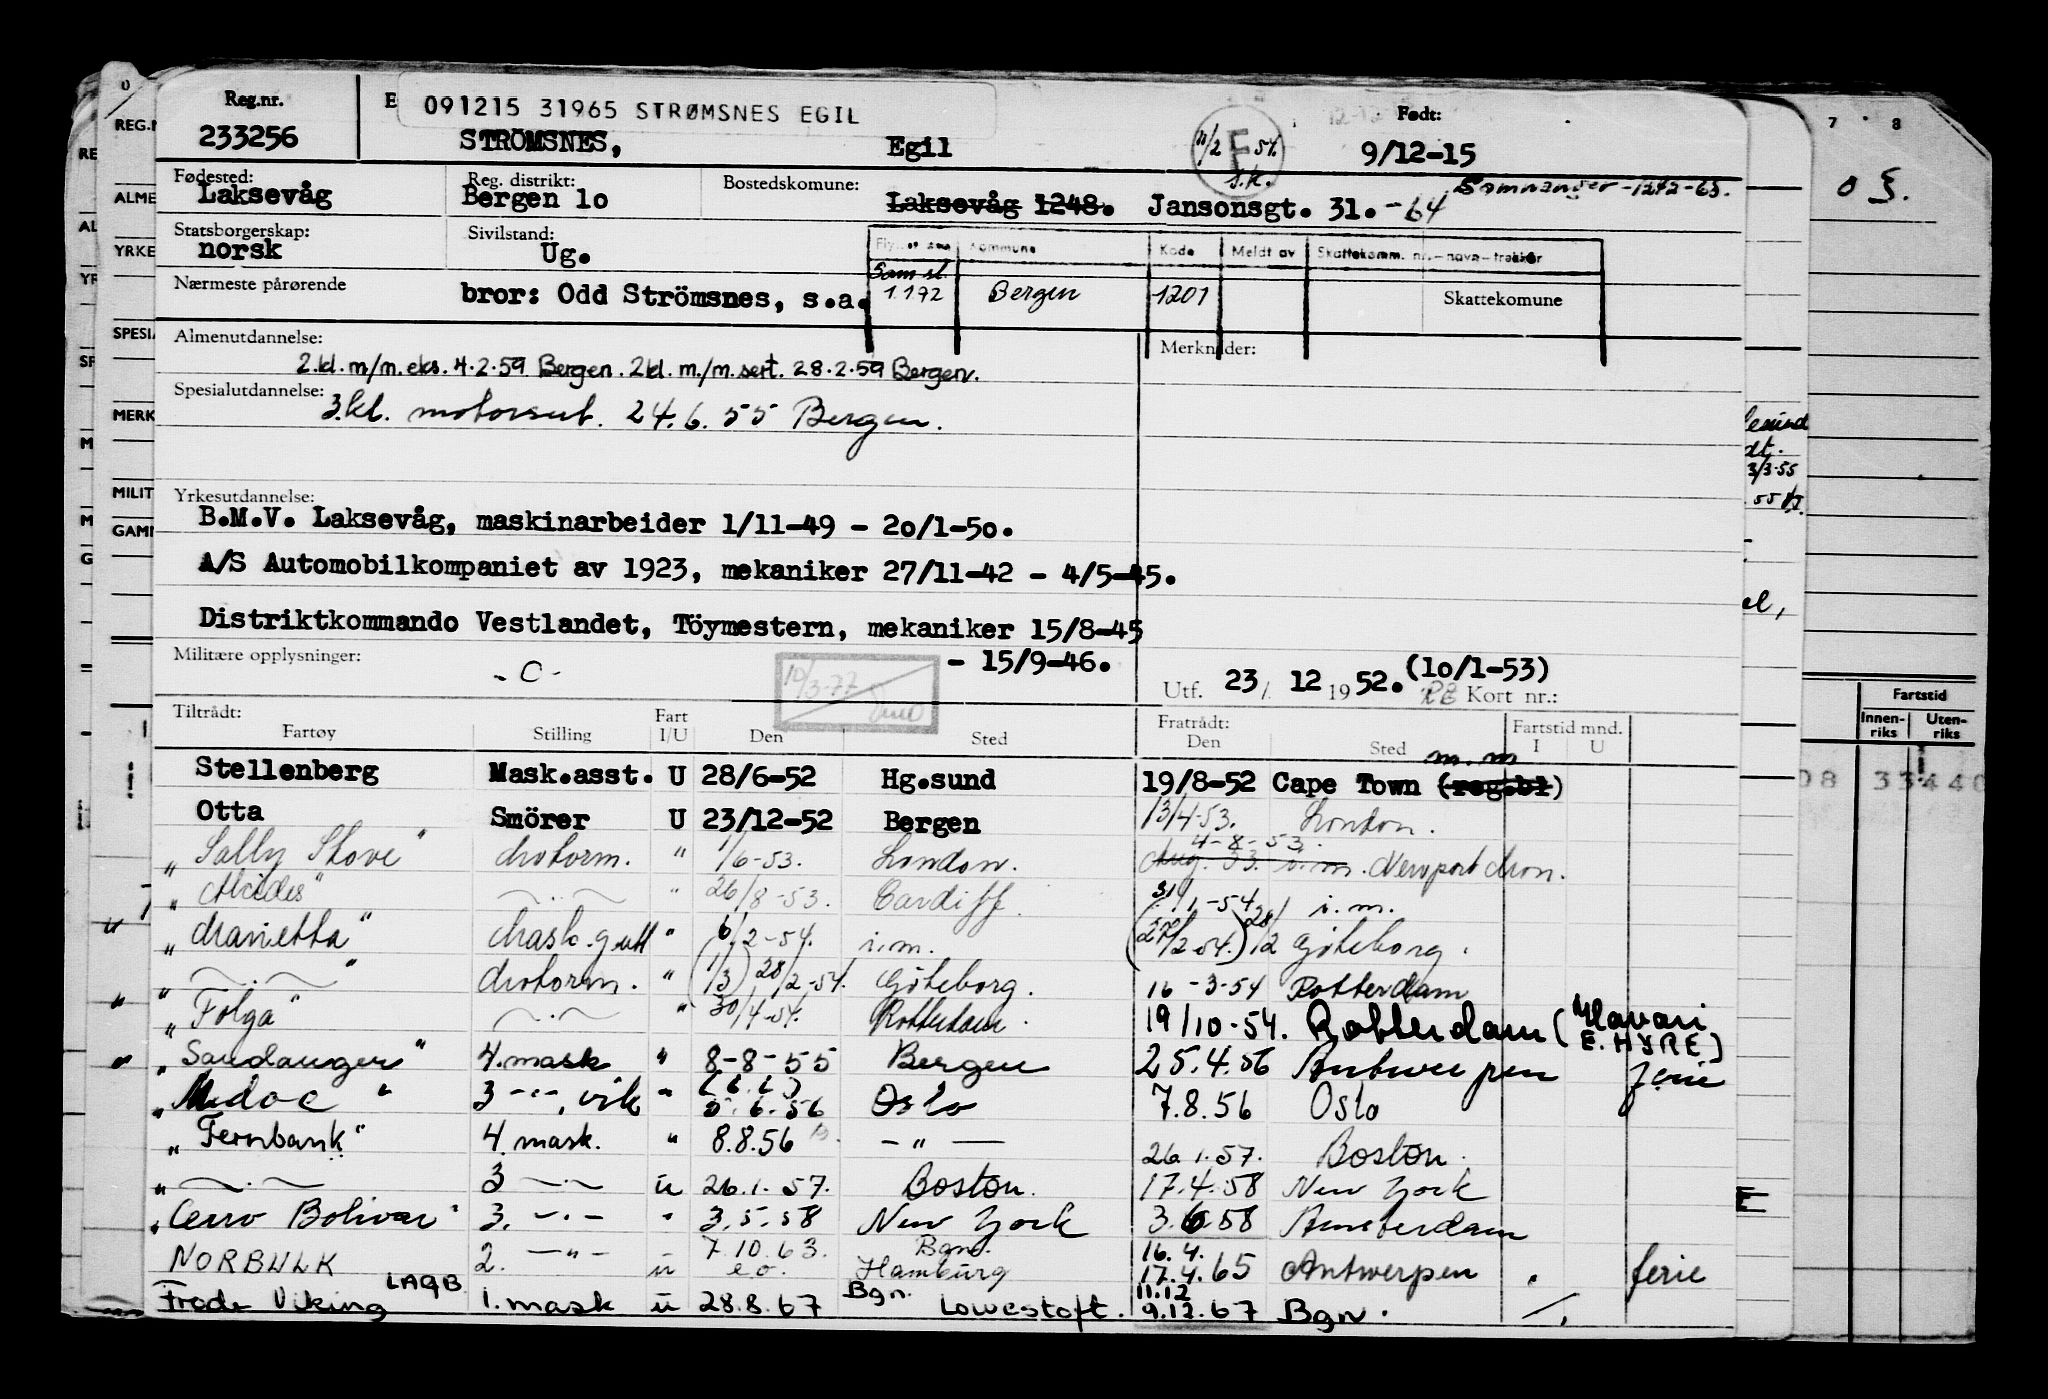 Reg.nr. 091215 31965 STRØMSNES EGIL Født:
233256 STRÖMSNES, Egil 11/2 F 54 s.k. 9/12-15
Fødested: Reg. distrikt: Bostedskomune: Samnanger -1242-65.
Laksevåg Bergen 10 Laksevåg 1248. Jansonsgt. 31. -64
Statsborgerskap: Sivilstand:
norsk Ug.
Kommune Kode Meldt av Skattekomm. nr.-navn-trekkår
Nærmeste pårørende bror: Odd Strömsnes, s.a. Sam.sl. 1.1.72 Bergen 1201 Skattekomune
Almenutdannelse: Merknader:
2.kl. m/m. eks. 4.2.59 Bergen. 2kl. m./m. sert. 28.2.59 Bergen.
Spesialutdannelse:
3.kl. motorsert. 24.6.55 Bergen.
Yrkesutdannelse:
B.M.V. Laksevåg, maskinarbeider 1/11-49 - 20/1-50.
A/S Automobilkompaniet av 1923, mekaniker 27/11-42 - 4/5-45.
Distriktkommando Vestlandet, Töymestern, mekaniker 15/8-45
- 15/9-46.
Militære opplysninger: -0- 10/3-77
Utf. 23/ 12 1952. (10/1-53) Kort nr.:
Tiltrådt: Fart Fratrådt: Fartstid mnd.
Fartøy Stilling I/U Den Sted Den Sted I U
Stellenberg Mask.asst. U 28/6-52 Hg.sund 19/8-52 Cape Town (reg.bl) m.m
Otta Smörer U 23/12-52 Bergen 13/4-53. London.
„ Sally Stove" Motorm. " 1/6-53. London. 4-8-53. Aug. 53. i.m. Newport Mon.
„ Alcides" —„— " 26/8-53. Cardiff. 31/1-54 i.m.
„ Marietta" Mask.gutt " 6/2-54. i.m. (27/2-54.) 28/2 Göteborg.
„ —„— " Motorm. " (1/3) 28/2-54. Göteborg. 16-3-54 Rotterdam
„ Folga" —„— " 30/4-54. Rotterdam. 19/10-54. Rotterdam (Havari E. HYRE)
„ Sandanger" 4.mask " 8-8-55 Bergen 25.4.56 Antwerpen ferie
„ Medoc " 3 —„—, vik " (6.6) 5.6.56 Oslo 7.8.56 Oslo
„ Fernbank" 4.mask. " 8.8.56 - " - 26.1.57. Boston.
„ —„— 3 —„— u 26.1.57. Boston. 17.4.58 New York
„ Cerro Bolivar" 3. —„— " 3.5.58 New York 3.6.58 Amsterdam
NORBULK 2. —„— u 7.10.63. e.o. Bgn. Hamburg 16.4. 17.4.65 Antwerpen ferie
Frode Viking LAQB 1.mask u 28.8.67 Bgn. Lowestoft. 11.12 9.12.67 Bgn.
REG.N
ALME
YRKE
SPESIA
MERK
MILIT
GAM
7 8
3/3-55
Fartstid
Innen-riks Uten-riks
08 33440